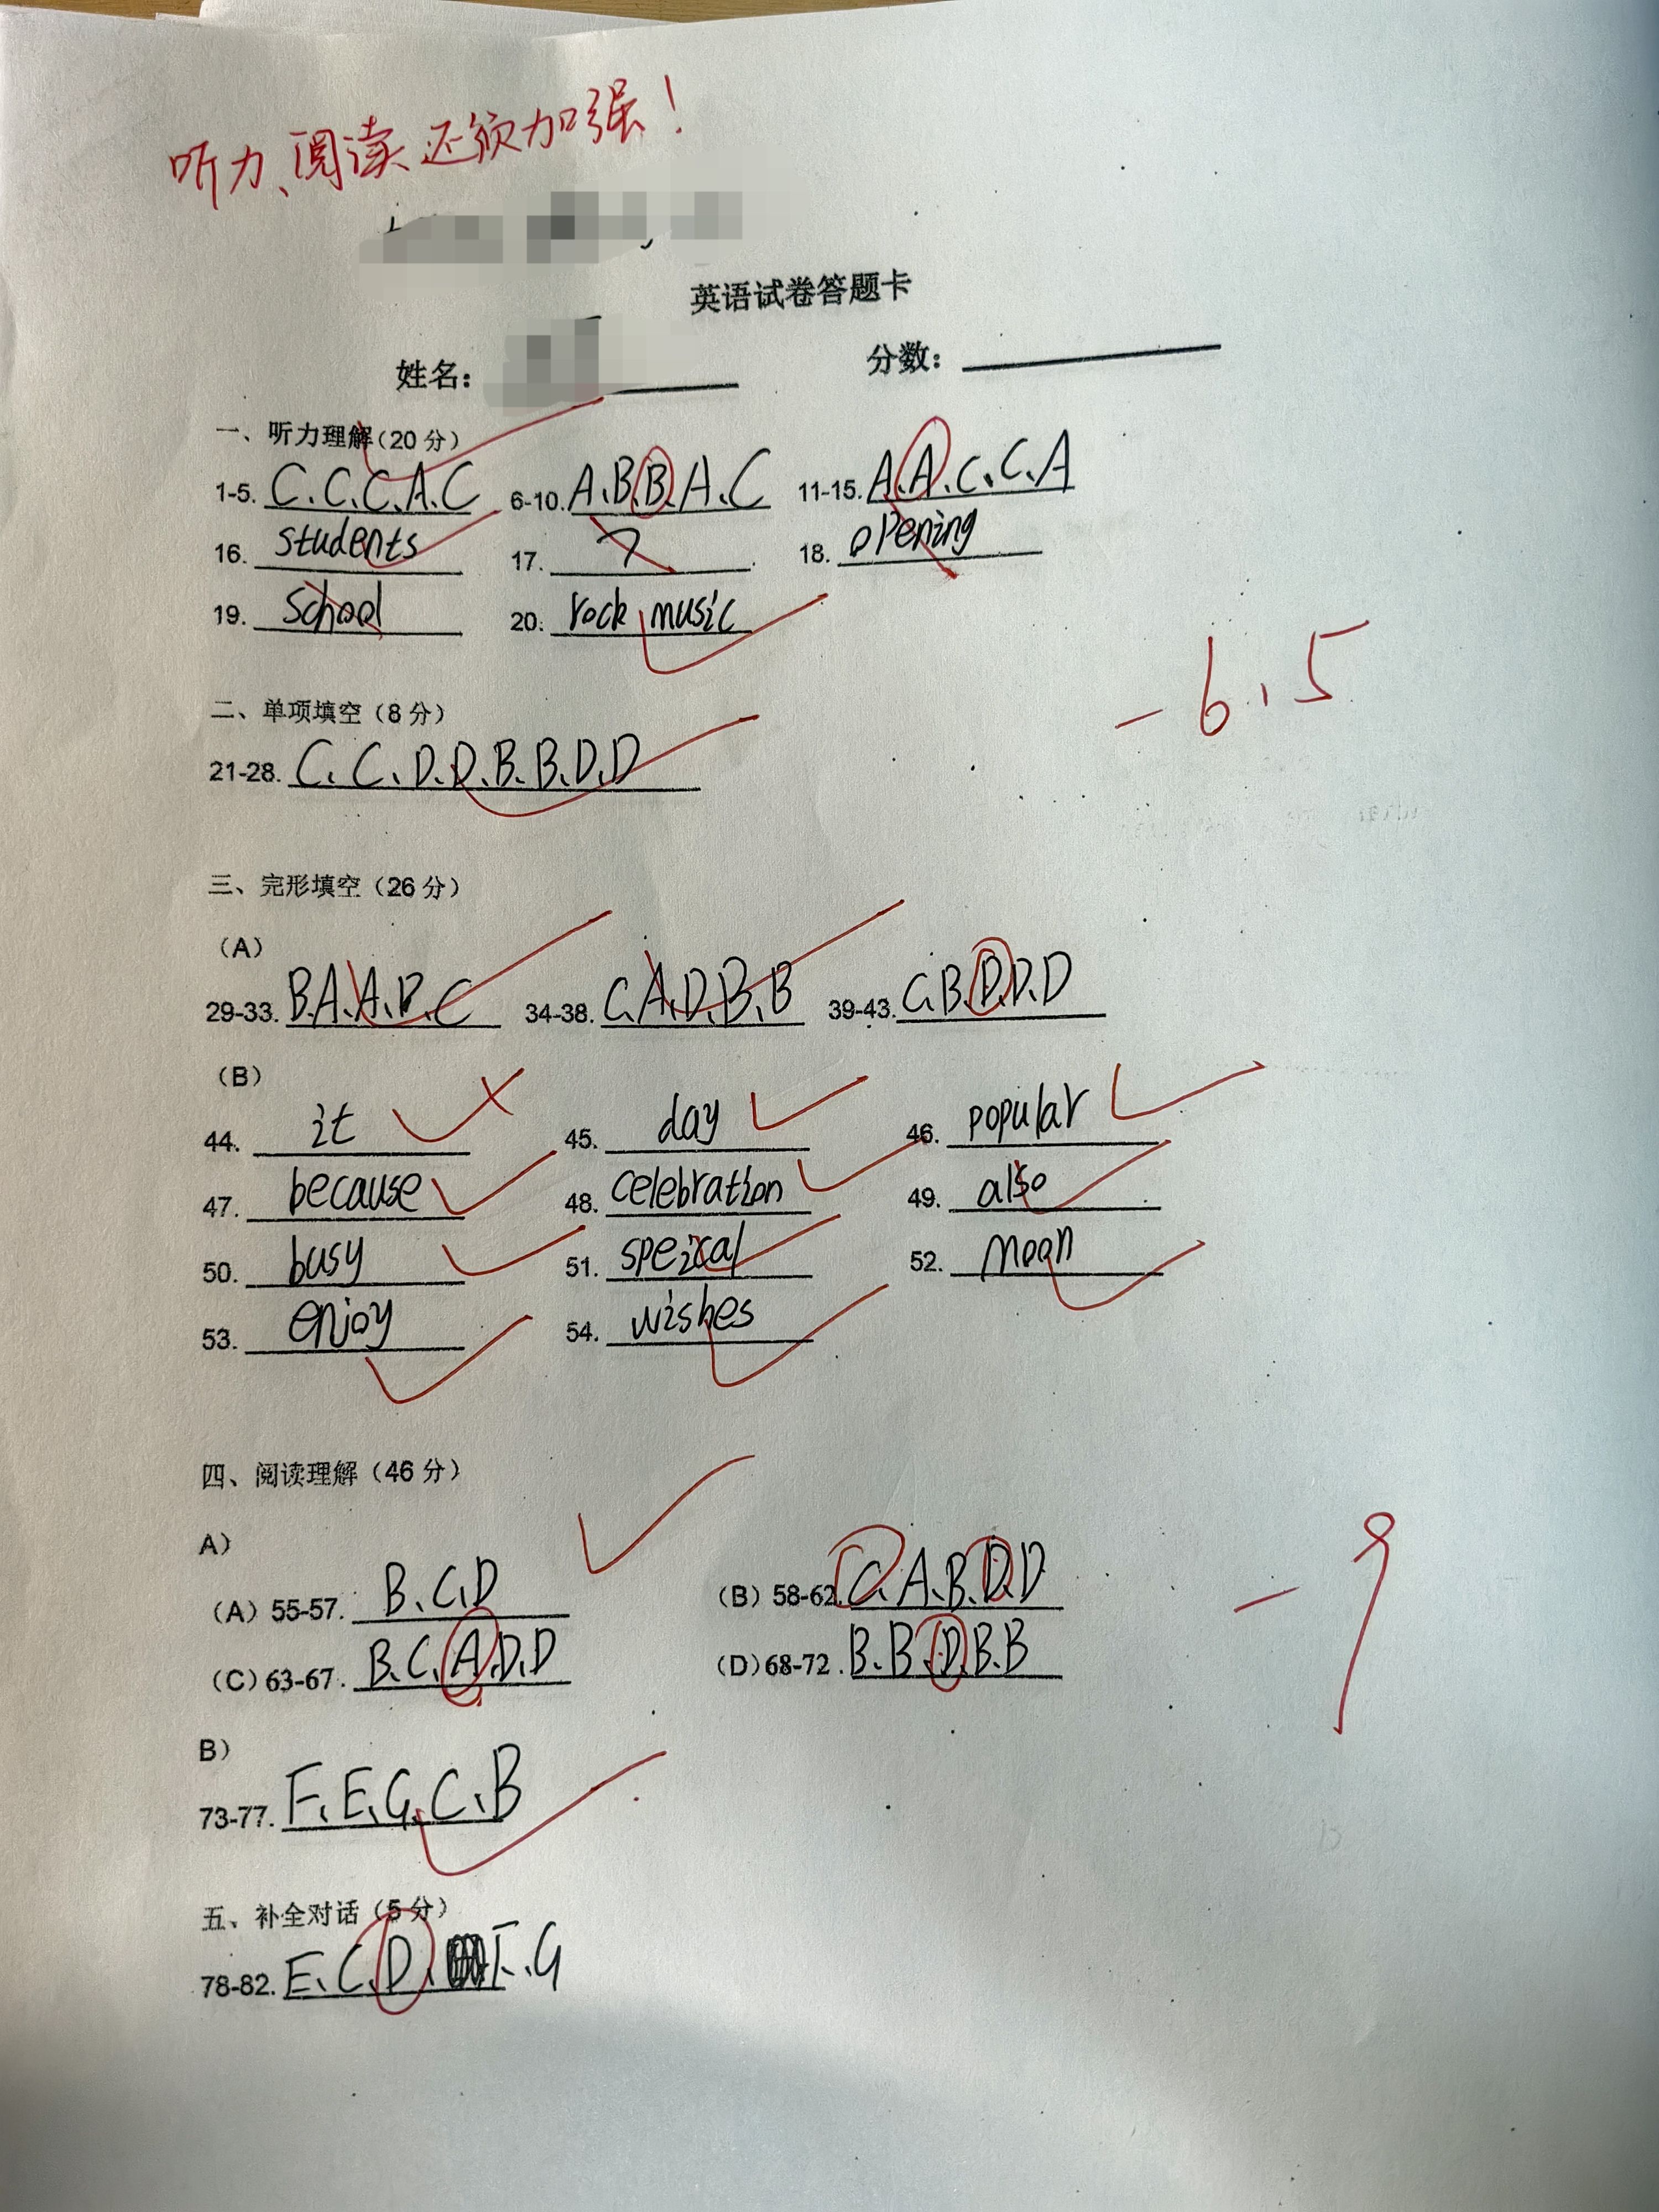 听力、阅读还须加强！
英语试卷答题卡
姓名： 分数：
一、听力理解（20 分）
1-5. C.C.C.A.C 6-10. A.B.B.A.C 11-15. A.A.C.C.A
16. students 17. 7 18. opening
19. School 20. rock music
-6.5
二、单项填空（8 分）
21-28. C.C.D.D.B.B.D.D
三、完形填空（26 分）
（A）
29-33. B.A.A.B.C 34-38. C.A.D.B.B 39-43. C.B.D.D.D
（B）
44. it 45. day 46. popular
47. because 48. celebration 49. also
50. busy 51. speical 52. moon
53. enjoy 54. wishes
四、阅读理解（46 分）
A）
（A）55-57. B.C.D （B）58-62. C.A.B.D.D
-9
（C）63-67. B.C.A.D.D （D）68-72. B.B.D.B.B
B）
73-77. F.E.G.C.B
五、补全对话（5 分）
78-82. E.C.D. F.G